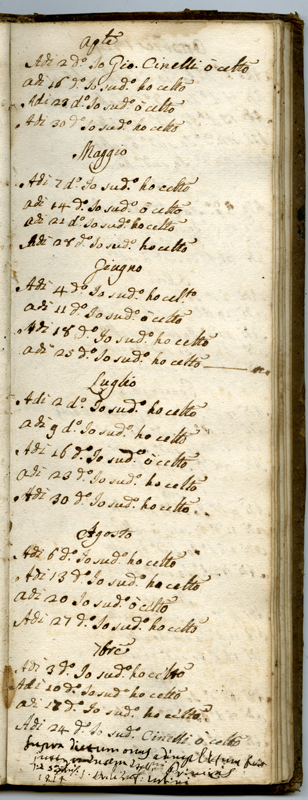 Aprle
Adi 2 do. Io Gio. Cinelli ò celto
adi 16 do. Io sudo. ho celto
Adi 23 do. Io sudo. ò celto
Adi 30 do. Io sudo. ho celto
Maggio
Adi 7 do. Io sudo. ho celto
adi 14 do. Io sudo. ò celto
adi 21 do. Io sudo. ho celto
Adi 28 do. Io sudo. ho celto
Giugno
Adi 4 do. Io sudo. ho celto
adi 11 do. Io sudo. ò celto
Adi 18 do. Io sudo. ho celto
adi 25 do. Io sudo. ho celto
Luglio
Adi 2 do. Io sudo. ho celto
adi 9 do. Io sudo. ho celto
Adi 16 do. Io sudo. ò celto
adi 23 do. Io sudo. ho celto
Adi 30 do. Io sudo. ho celto
Agosto
Adi 6 do. Io sudo. ho celto
Adi 13 do. Io sudo. ho celto
adi 20 Io sudo. ò celto
Adi 27 do. Io sudo. ho celto
7bre
Adi 3 do. Io sudo. ho celto
Adi 10 do. Io sudo. ho celto
adi 18 do. Io sudo. ho celto
Adi 24 do. Io sudo. Cinelli ò celto
supra dictum onus